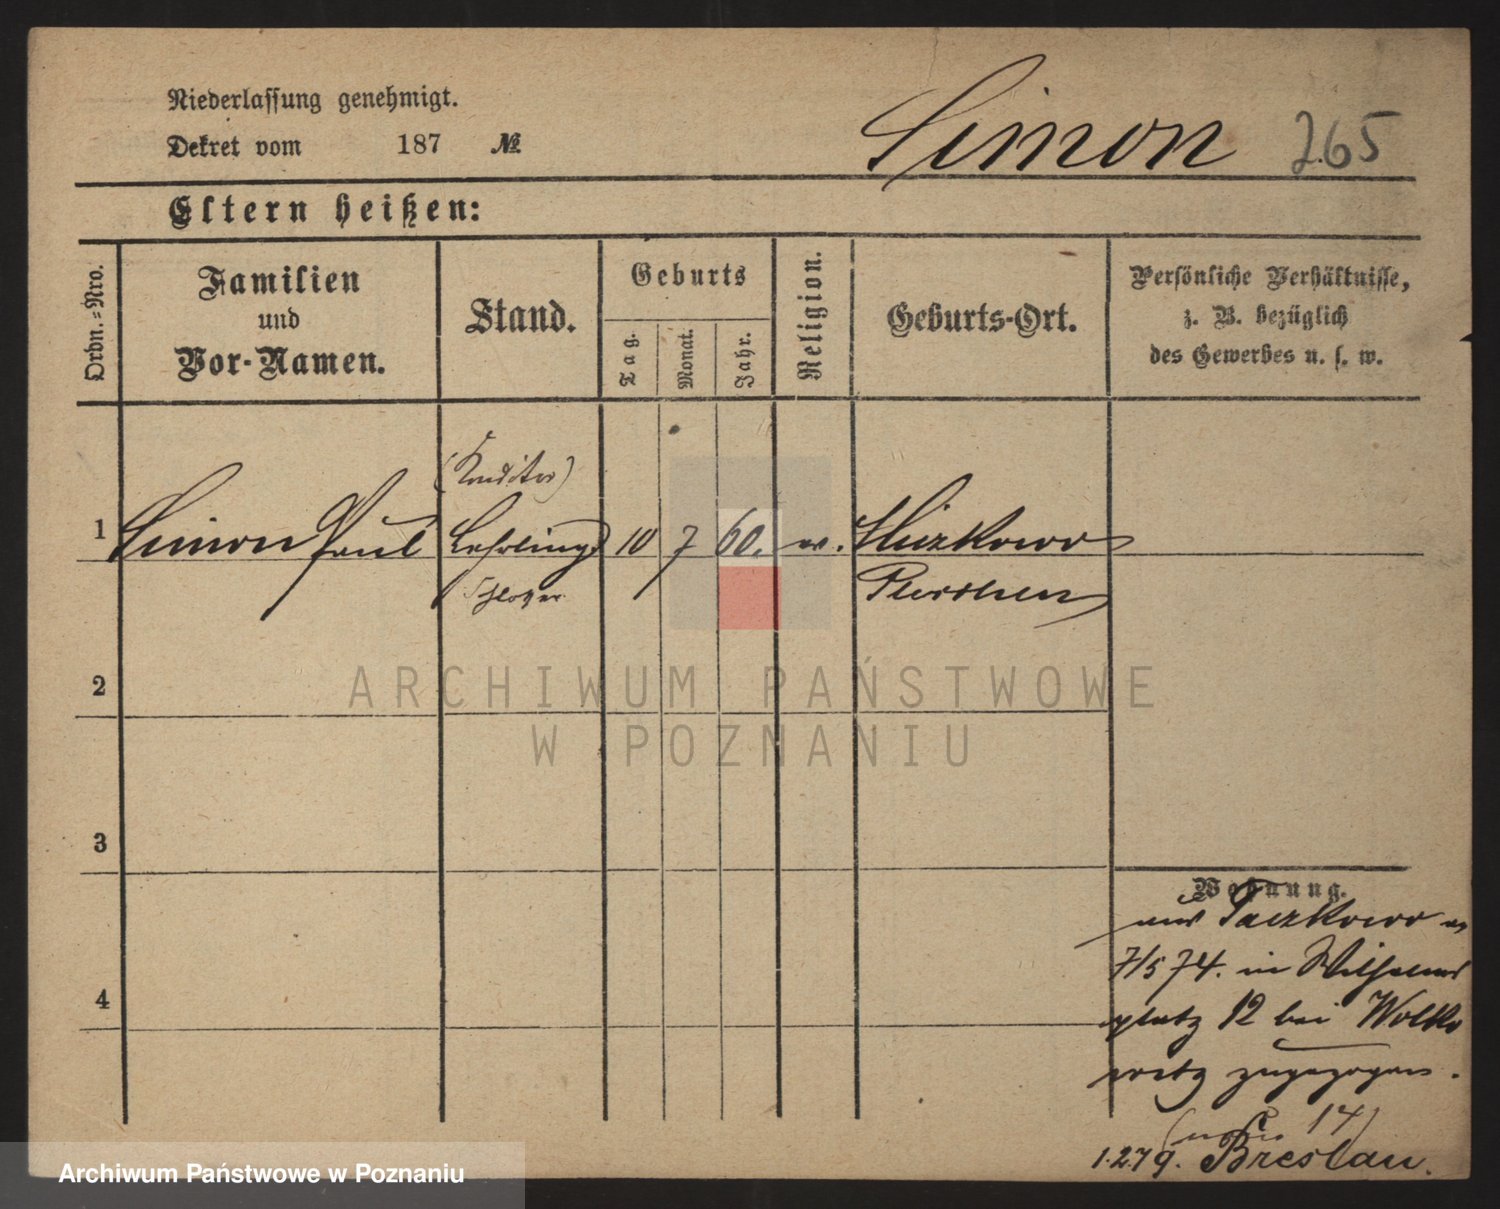 Niederlassung genehmigt.
Dekret vom 187 №
Simon 265
Eltern heißen:
Ordn.=Nro.
Familien
und
Vor-Namen.
Stand.
Geburts
Tag.
Monat.
Jahr.
Religion.
Geburts-Ort.
Persönliche Verhältnisse,
z. B. bezüglich
des Gewerbes u. s. w.
(Konditor)
1 Simon Paul Lehrling 10 7 60.
Pleschen
2
ARCHIWUM PAŃSTWOWE
W POZNANIU
3
Wohnung.
aus
7/5 74. in Wilhelms
platz 12 bei Wolko
witz zugezogen.
4
14)
1.2.79. Breslau.
Archiwum Państwowe w Poznaniu